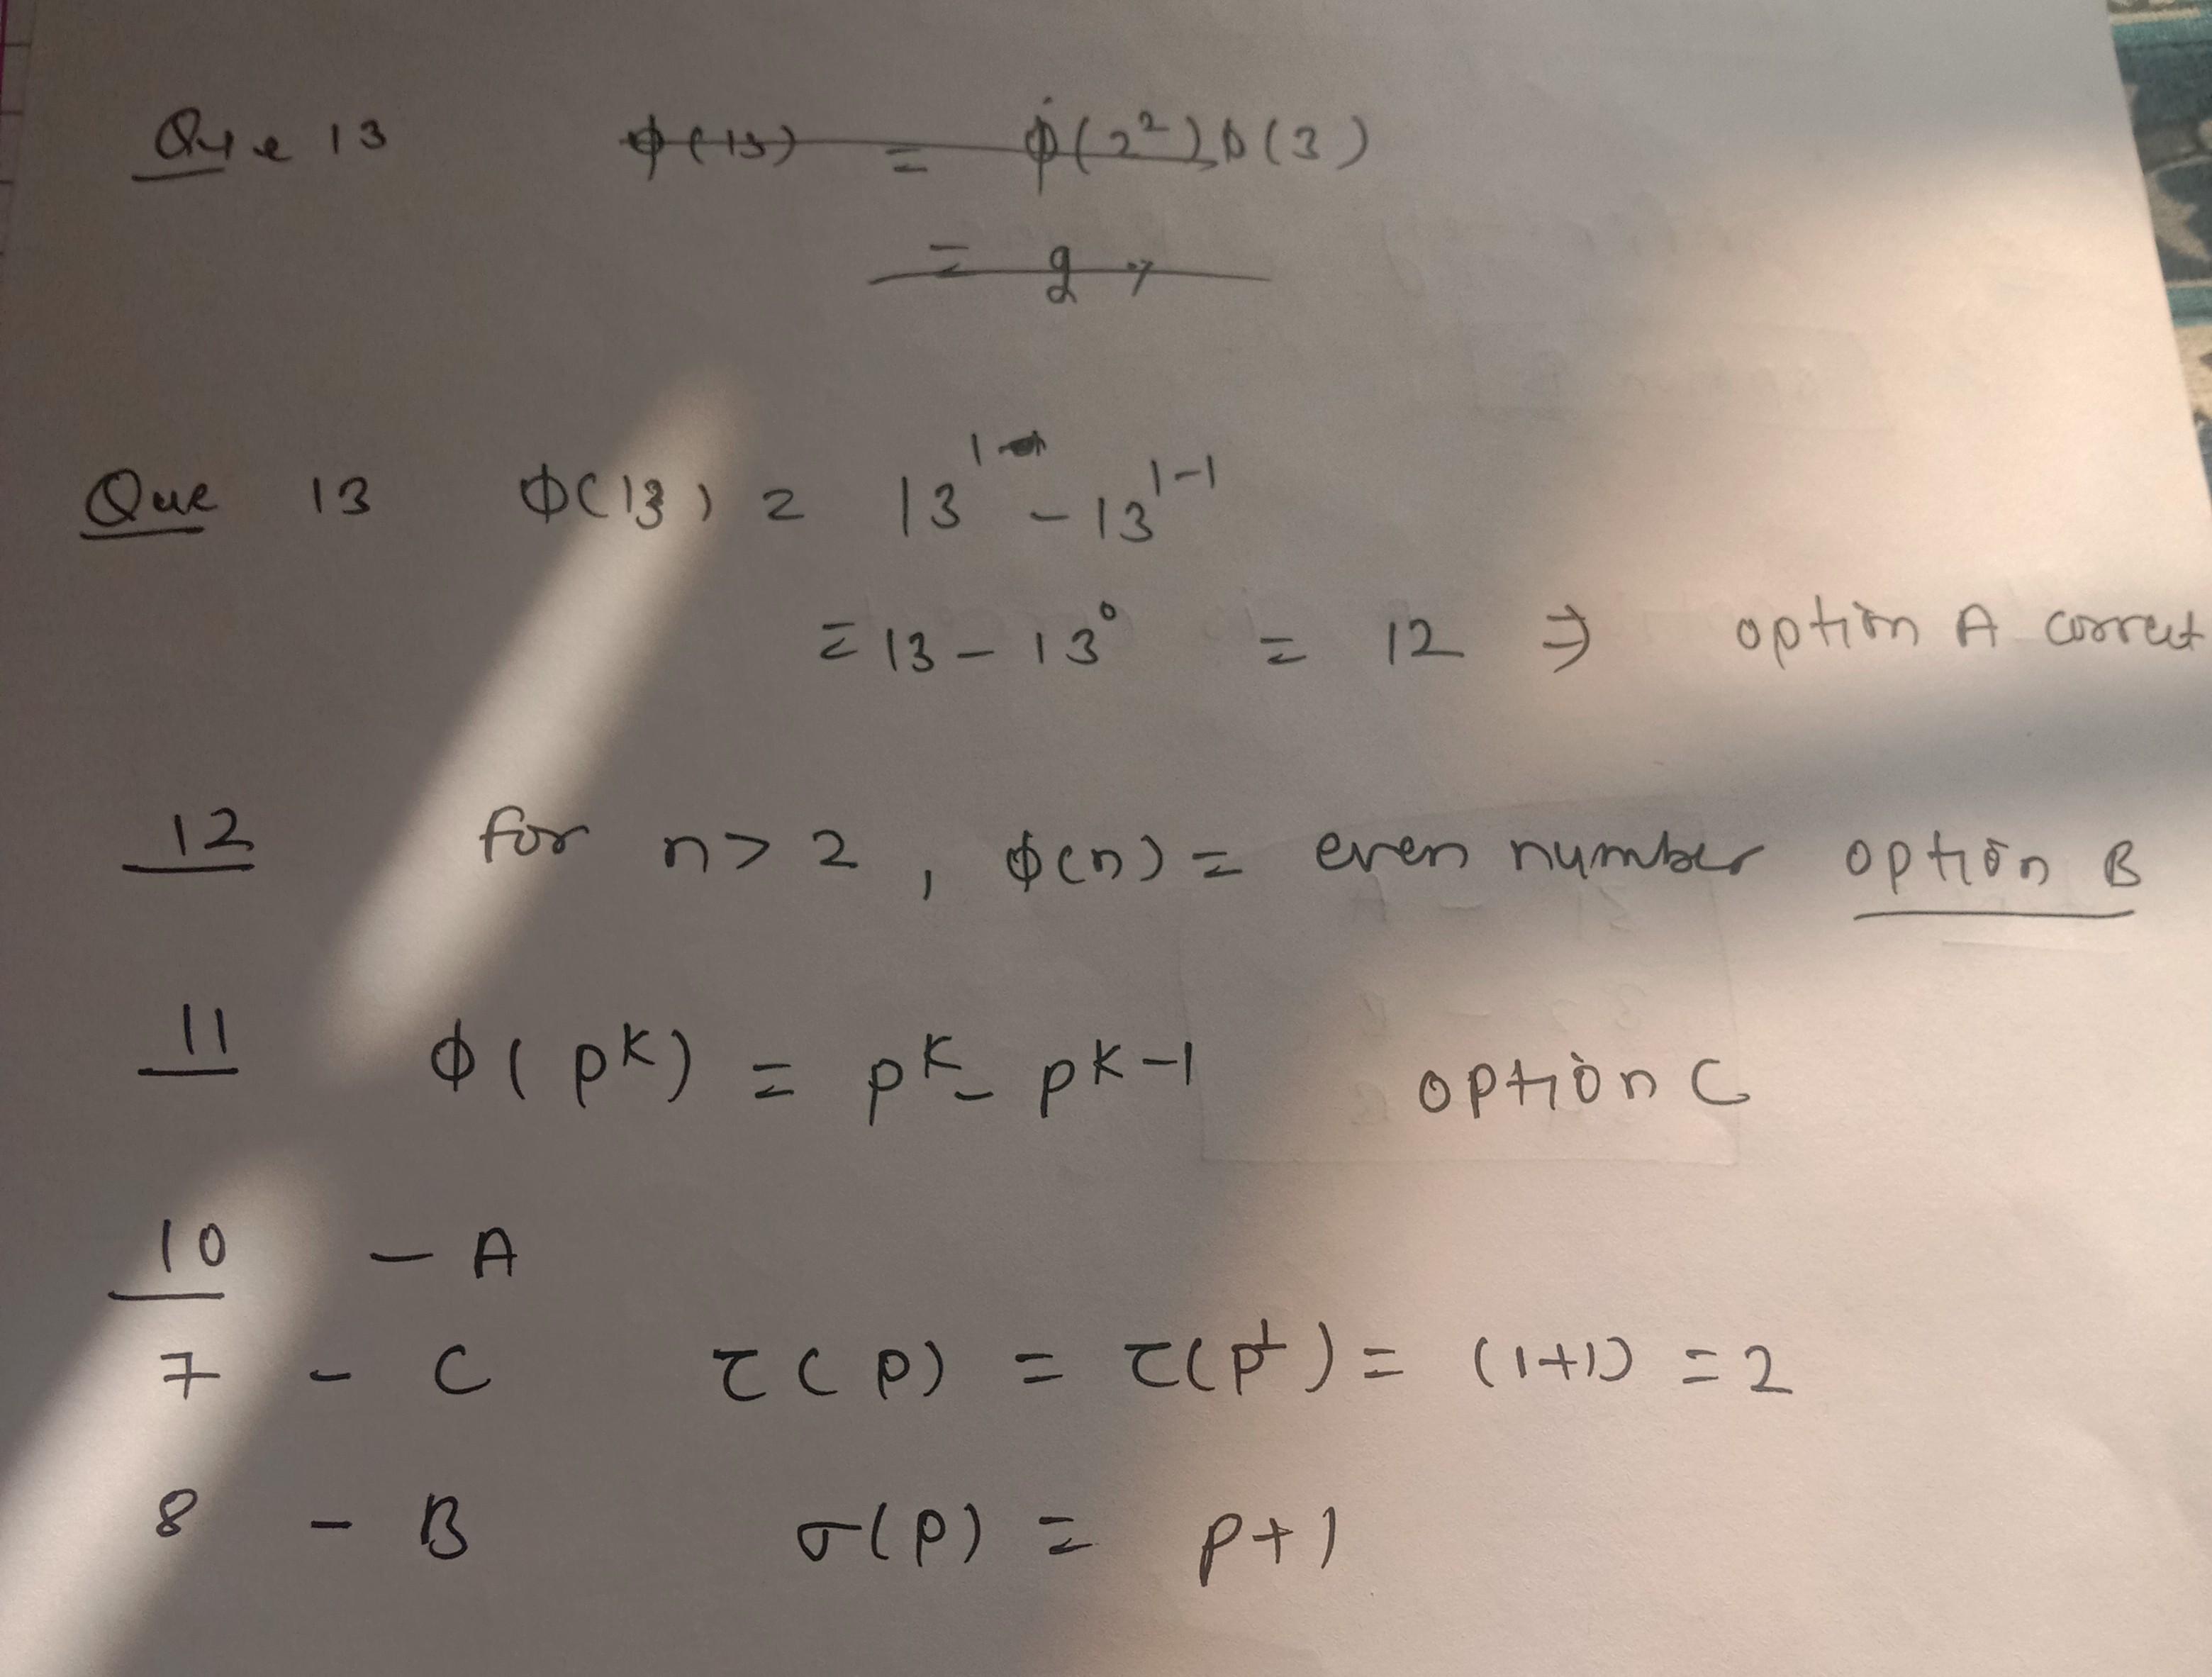 Que 13 ϕ(13) = ϕ(2²)ϕ(3)
= 2
Que 13 ϕ(13) = 13¹ - 13¹⁻¹
= 13 - 13⁰ = 12 ⇒ option A correct
12 for n > 2, ϕ(n) = even number option B
11 ϕ(pᵏ) = pᵏ - pᵏ⁻¹ option C
10 - A
7 - C τ(p) = τ(p¹) = (1+1) = 2
8 - B σ(p) = p+1